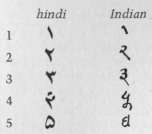 hindi Indian
1 ١ १
2 ٢ २
3 ٣ ३
4
5 ۵